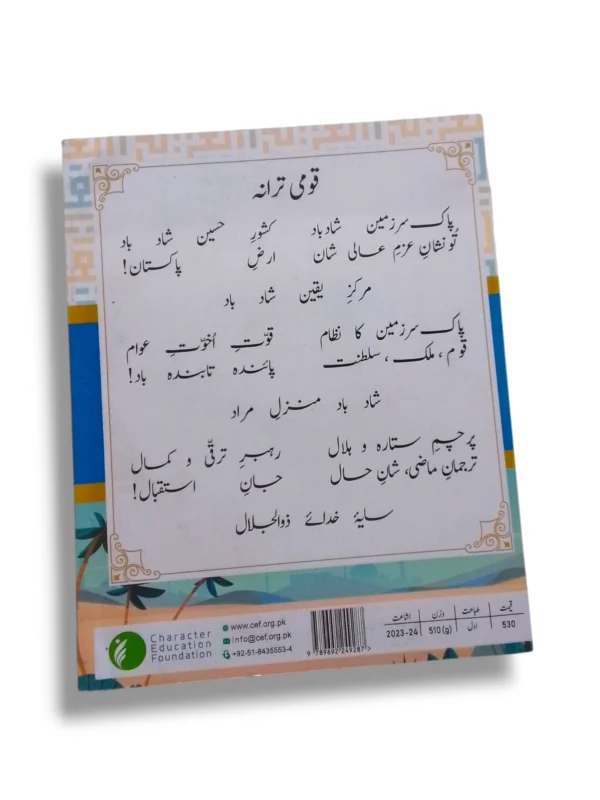 قومی ترانہ
پاک سرزمین شادباد کشورِ حسین شاد باد
تُو نشانِ عزمِ عالی شان ارضِ پاکستان!
مرکزِ یقین شاد باد
پاک سرزمین کا نظام قوّتِ اُخوّتِ عوام
قوم، ملک، سلطنت پائندہ تابندہ باد!
شاد باد منزلِ مراد
پرچمِ ستارہ و ہلال رہبرِ ترقیّ و کمال
ترجمانِ ماضی، شانِ حال جانِ استقبال!
سایۂ خدائے ذوالجلال
Character
Education
Foundation
www.cef.org.pk
info@cef.org.pk
+92-51-8435553-4
9 789692 249287 >
قیمت طباعت وزن اشاعت
530 اول 510 (g) 2023-24